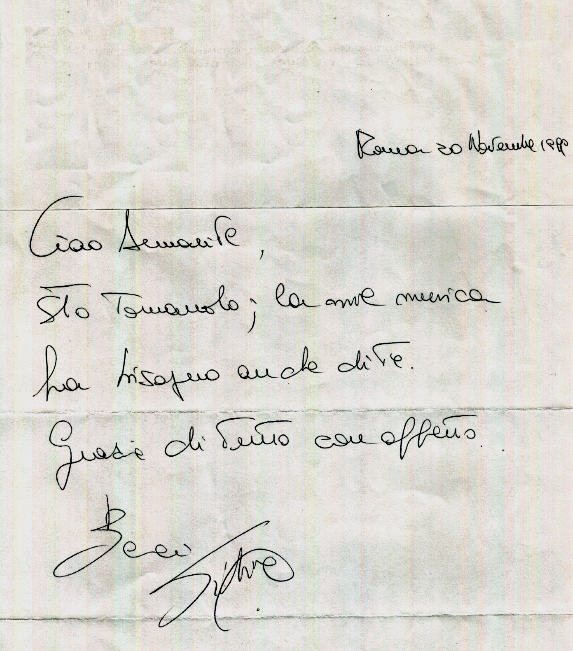 Roma 20 Novembre 1990
Ciao Amante,
Sto Tornando; la mie musica
ha bisogno anche di te.
Grazie di tutto con affetto.
Baci